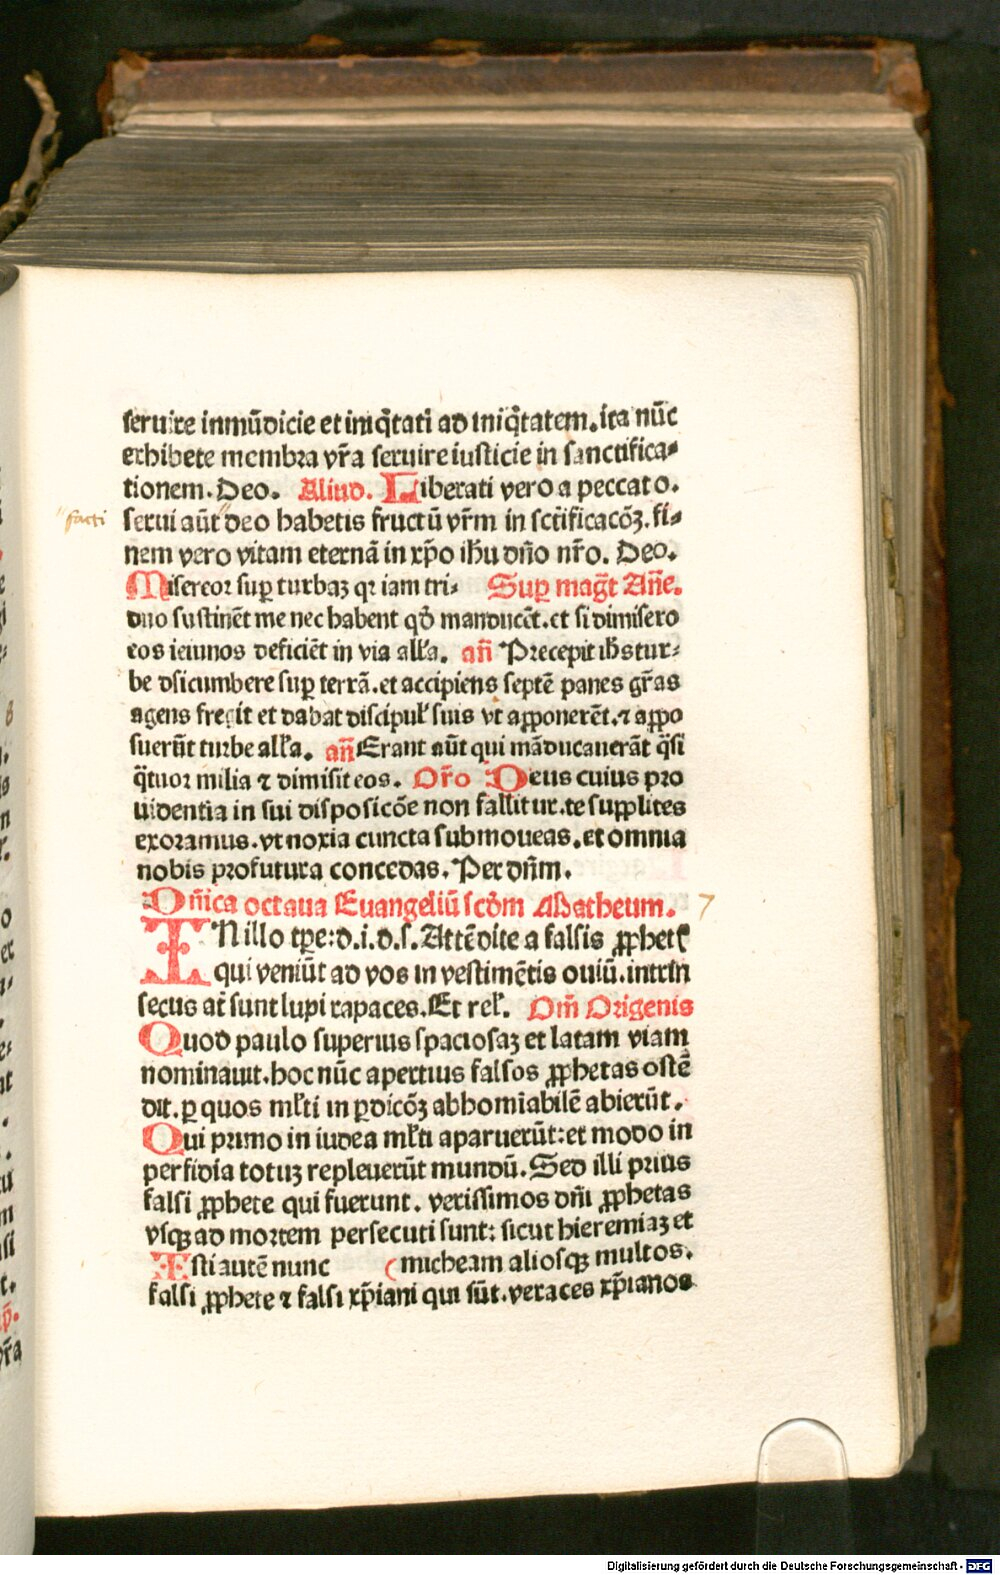 seruire inmūdicie et iniq̄tati ad iniq̄tatem. ita nūc
exhibete membra vr̄a seruire iusticie in sanctifica-
tionem. Deo. Aliud. Liberati vero a peccato.
facti
serui aūt deo habetis fructū vr̄m in sctificacōꝫ. fi-
nem vero vitam eternā in xp̄o ihu dn̄o nr̄o. Deo.
Misereor suꝑ turbaꝫ qꝛ iam tri- Suꝑ magt̄ Añe.
duo sustinēt me nec habent qd̄ manducēt. et si dimisero
eos ieiunos deficiēt in via all'a. añ Precepit ihs tur-
be discumbere suꝑ terrā. et accipiens septē panes gr̄as
agens fregit et dabat discipul' suis vt apponerēt. ⁊ appo
suerūt turbe all'a. añ Erant aūt qui māducauerāt q̄si
q̄tuor milia ⁊ dimisit eos. Or̄o Deus cuius pro
uidentia in sui disposicōe non fallitur. te supplites
exoramus. vt noxia cuncta submoueas. et omnia
nobis profutura concedas. Per dn̄m.
Dn̄ica octaua Euangeliū scd̄m Matheum. 7
IN illo tꝑe: d. i. d. s. Attēdite a falsis ꝓphetꝭ
qui veniūt ad vos in vestimētis ouiū. intrin
secus at̄ sunt lupi rapaces. Et rel'. Om̄ Origenis
Quod paulo superius spaciosaꝫ et latam viam
nominauit. hoc nūc apertius falsos ꝓphetas ostē
dit. ꝑ quos ml'ti in ꝑdicōꝫ abhomīabilē abierūt.
Qui primo in iudea ml'ti aparuerūt: et modo in
perfidia totuꝫ repleuerūt mundū. Sed illi prius
falsi ꝓphete qui fuerunt. verissimos dn̄i ꝓphetas
vsqꝫ ad mortem persecuti sunt: sicut hieremiaꝫ et
Isti autē nunc ( micheam aliosqꝫ multos.
falsi ꝓphete ⁊ falsi xp̄iani qui sūt. veraces xp̄ianos
Digitalisierung gefördert durch die Deutsche Forschungsgemeinschaft - DFG